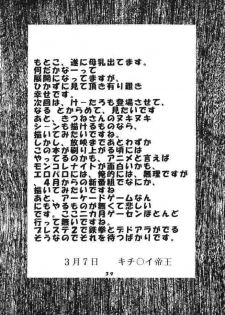 もとこ、遂に母乳出てます。
何だかなーって
展開になってますが、
ひかずに見て頂き有り難き
幸せです。
次回は、け－たろも登場させて、
なる とからめて、見たいです
あと、きつねさんのヌキヌキ
シーンも描けるものなら、
描いてみたいですね
しかのし、放映まであとわずか
この本が刷り上がる頃には
やってるしのかも、アニメと言えば
モンコレナイトが面白いかも、
エロパロには、俺的には、無理ですが
4月からの新番組でなにか、
描いてみたいですね
あと、アーケードゲームなん
にもやるものが無くて悲しい
です。ここ二カ月ゲーセンほとんど
行ってないです。
プレステ2で鉄拳とデドアラがでる
そうなのでそれを待つばかりです。
3月7日 キチ○イ帝王
39